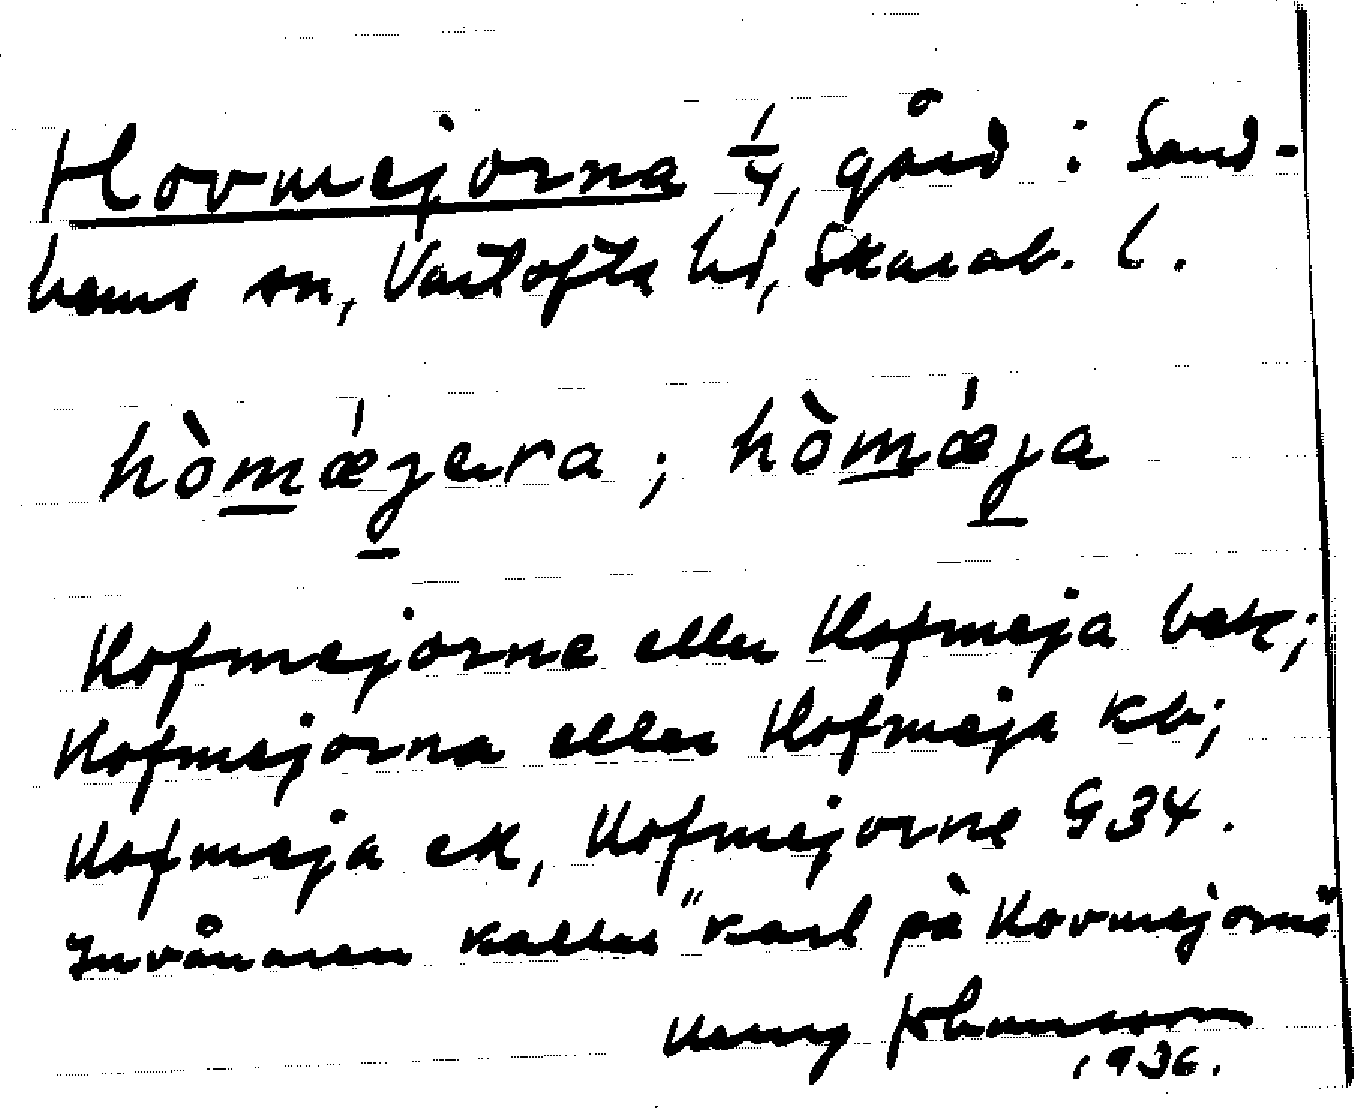 Hovmejorna 1/4, gård i Sand-
hems sn, Vartofta hd, Skarab. l.
hòmǽjera ; hòmǽja
Hofmejorne eller Hofmeja bek;
Hofmejorna eller Hofmeja kb;
Hofmeja ek, Hofmejorne G34.
Invånaren kallas "karl på Hovmejorna"
Henry Johansson
1936.